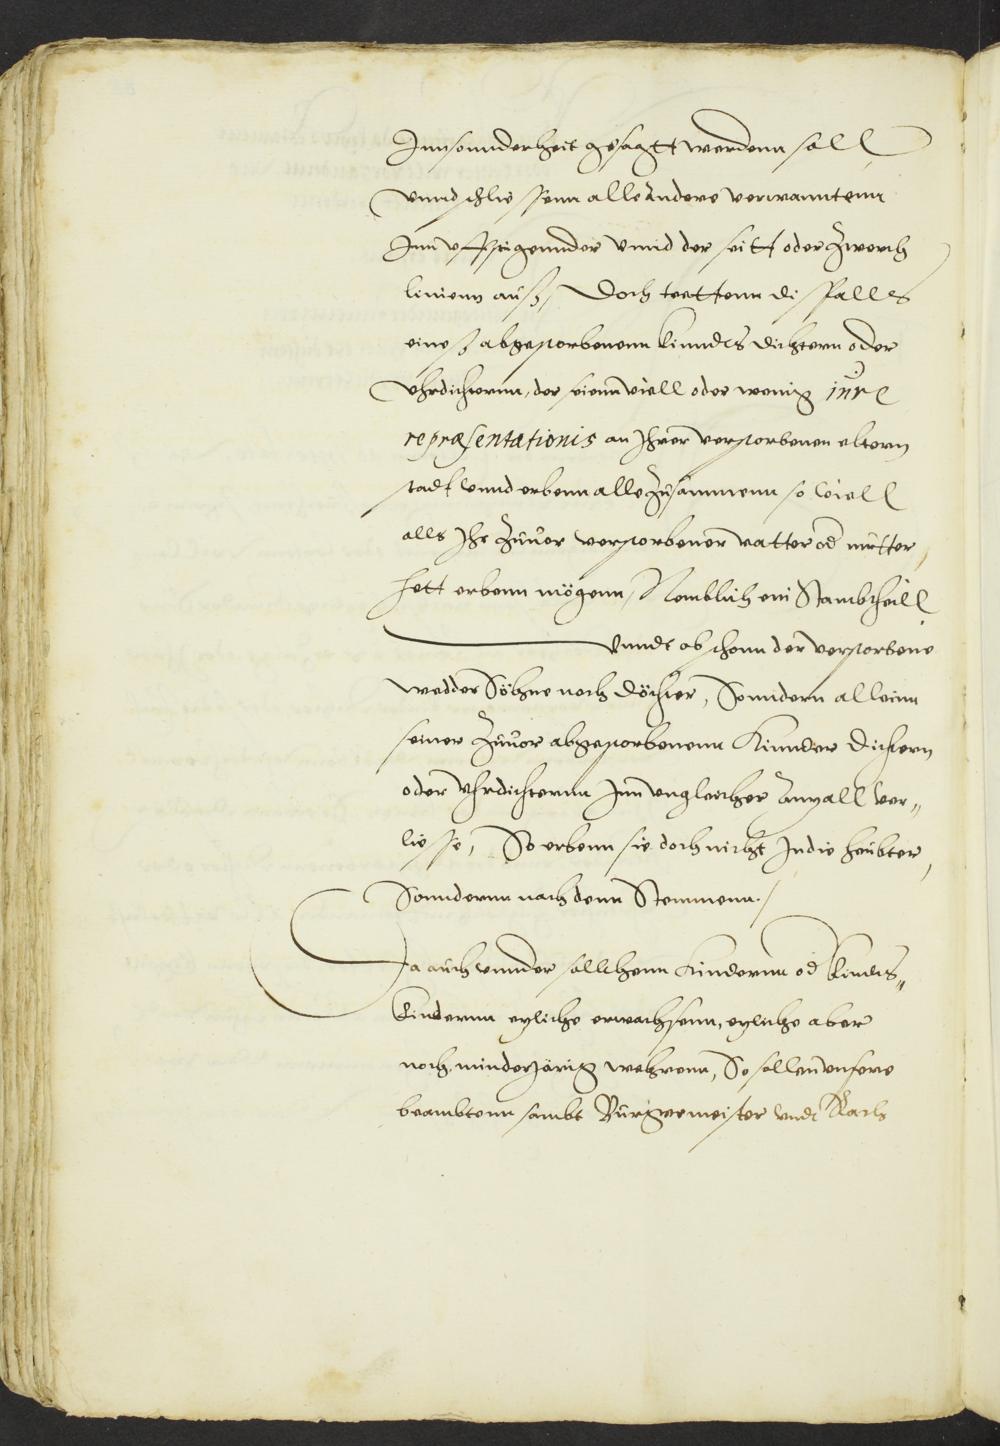 Innsonnderheit gesagtt werdenn soll
vnnd schliessenn alle Andere verwanntenn
Inn vffsteigennder vnnd der seitt oder Zwerch
linienn auß, Doch trettenn diß Falls
eineß abgestorbenenn kinndts dichtern oder
Vhrdichternn, der seienn viell oder wenig iure
repræsentationis an Ihrer verstorbenen eltern
stadt vnnd erbenn alle Zusammenn so viell
alls Ihr Zuuor verstorbener vatter od mutter
hett erbenn mögenn, Nemblich ein Stambtheill
Vnndt ob schonn der verstorbene
wedder Söhne noch döchter, Sonndern alleinn
seiner Zuuor abgestorbenenn Kinnder Dichtern
oder Vhrdichternn Inn vngleicher Anzall ver„
liesse, So erbenn sie doch nicht In die heubter,
Sonndernn nach denn Stemmenn./
Da auch vnnder sollchenn Kindernn od Kindts„
kindernn etzliche erwachsenn, etzliche aber
noch minderJärig wehrenn, So sollenn vnsere
beambtenn sambt Bürgermeister vndt Rath